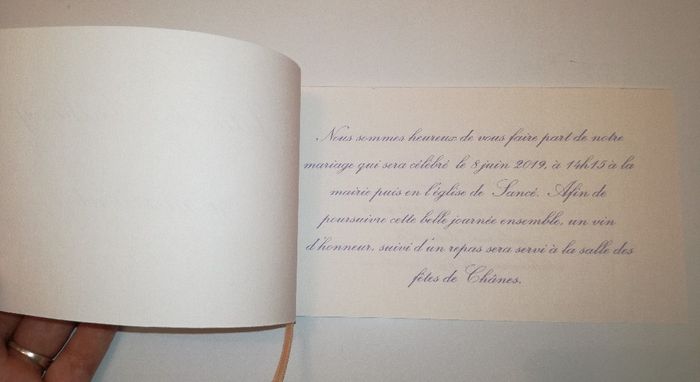 Nous sommes heureux de vous faire part de notre
mariage qui sera célébré le 8 juin 2019, à 14h15 à la
mairie puis en l'église de Sancé. Afin de
poursuivre cette belle journée ensemble, un vin
d'honneur, suivi d'un repas sera servi à la salle des
fêtes de Chânes.